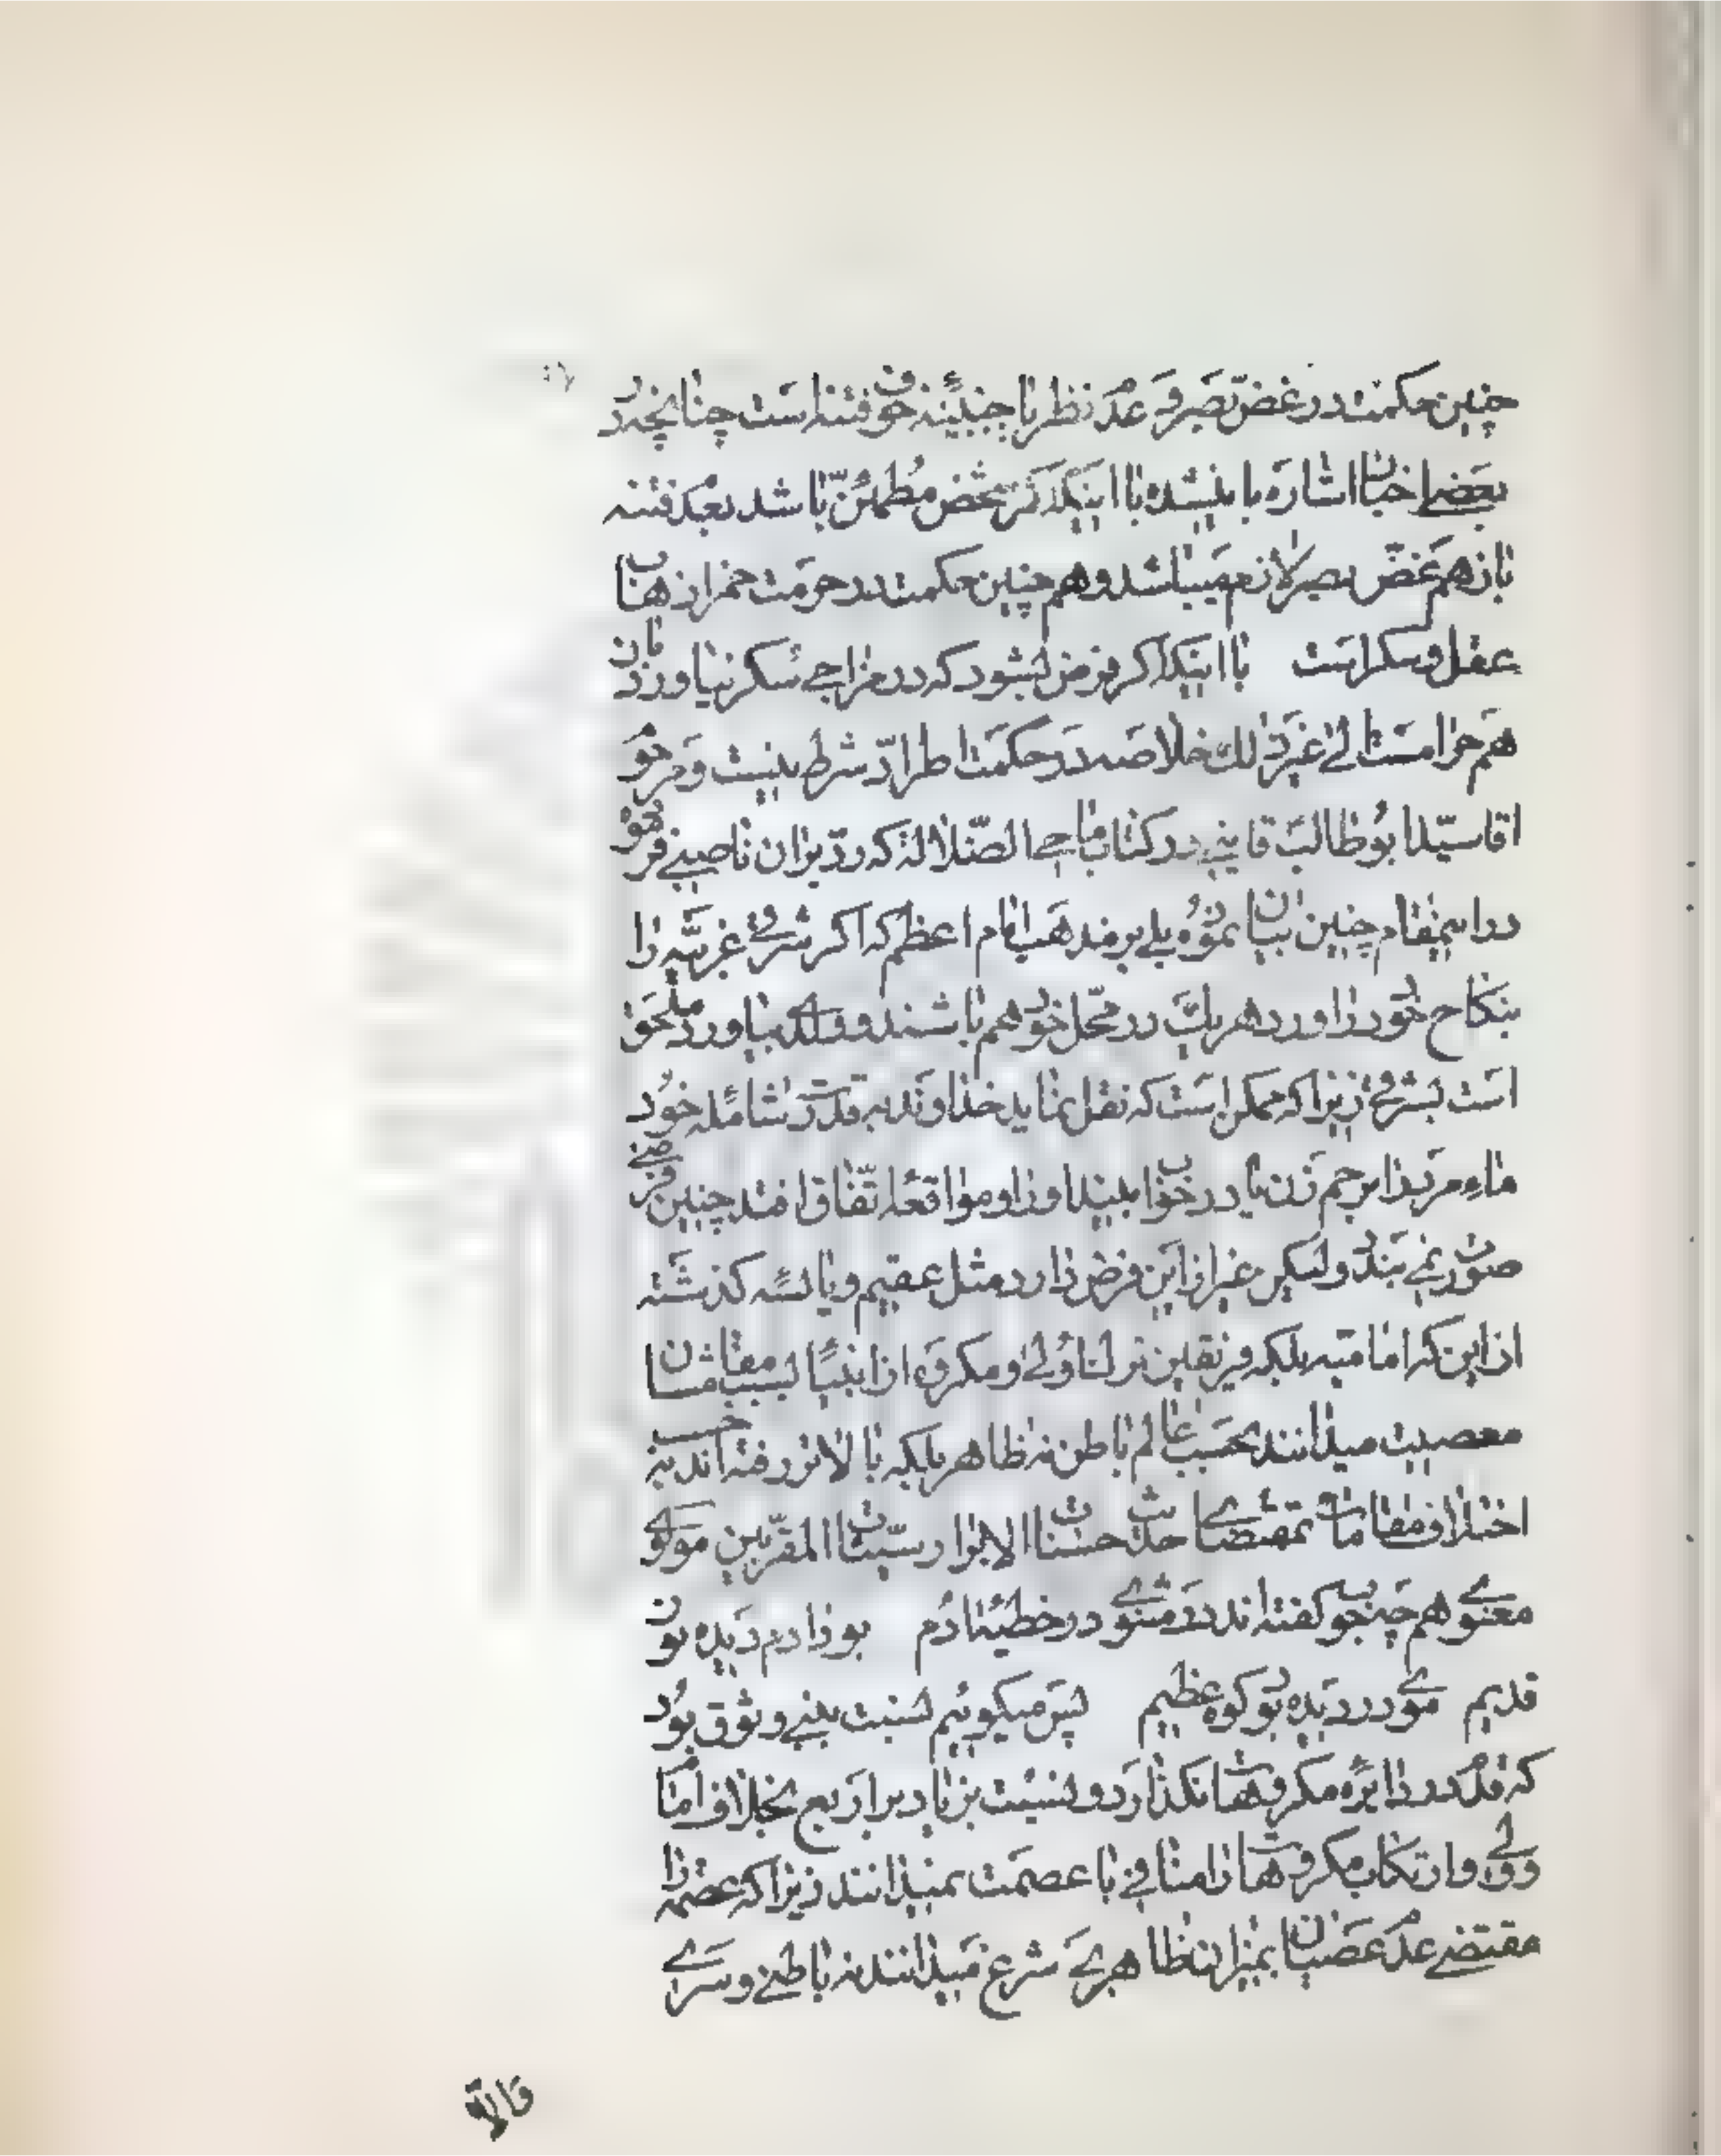 چنین حکمت در غض بصر و عدم نظر باجنبیه خوف فتنه است چنانچه در
بعضی اخبار اشاره باین شده با اینکه اگر شخص مطمئن باشد بعدم فتنه
باز هم غض بصر لازم میباشد و هم چنین حکمت در حرمت خمر اذهاب
عقل و سکر است با اینکه اکر فرض بشود که در مزاجی سکر نیاورد بازن
هم حرامست الی غیر ذلک خلاصه در حکمت اطراد شرط نیست و مرحوم
اقا سید ابوطالب قاینی در کتاب ماحی الضلاله که رد بر ان ناصبی فرموده
در اینمقام چنین بیان نموده بلی بر مذهب امام اعظم که اکر شرقی غربیه را
بنکاح خود در اورد و هر یک در محل خود هم باشند و ولد بیاورد ملحق
است بشرقی زیرا که ممکن است که نقل نماید خداوند به قدرت شامله خود
ماء مرد را برحم زن یا در خواب بیند او را و مواقعه اتفاق افتد چنین فرضی
صورت نمی بندد ولیکن غیر از این فرض دارد مثل عقیم و یائسه کذشته
از این که امامیه بلکه فریقین ترک اولی و مکروه از انبیا بسبب مقامشان
معصیت میدانند بحسب عالم باطن نه ظاهر بلکه بالاتر رفته اند به حسب
اختلاف مقامات بمقتضای حدیث حسنات الابرار سیئات المقربین مولوی
معنوی هم چه خوب کفته اند در مثنوی در خطیئه ادم بود ادم دیده نور
قدیم موی در دیده بود کوه عظیم پس میکوئیم نسبت بنبی وثوق بود
که قدم در دایره مکروهات نکذارد و نسبت بزیاد بر اربع بخلاف امام
وولی و ارتکاب مکروهات را منافی با عصمت نمیدانند زیرا که عصمة را
مقتضی عدم عصیان بمیزان ظاهری شرع میدانند نه باطنی و سری
والا